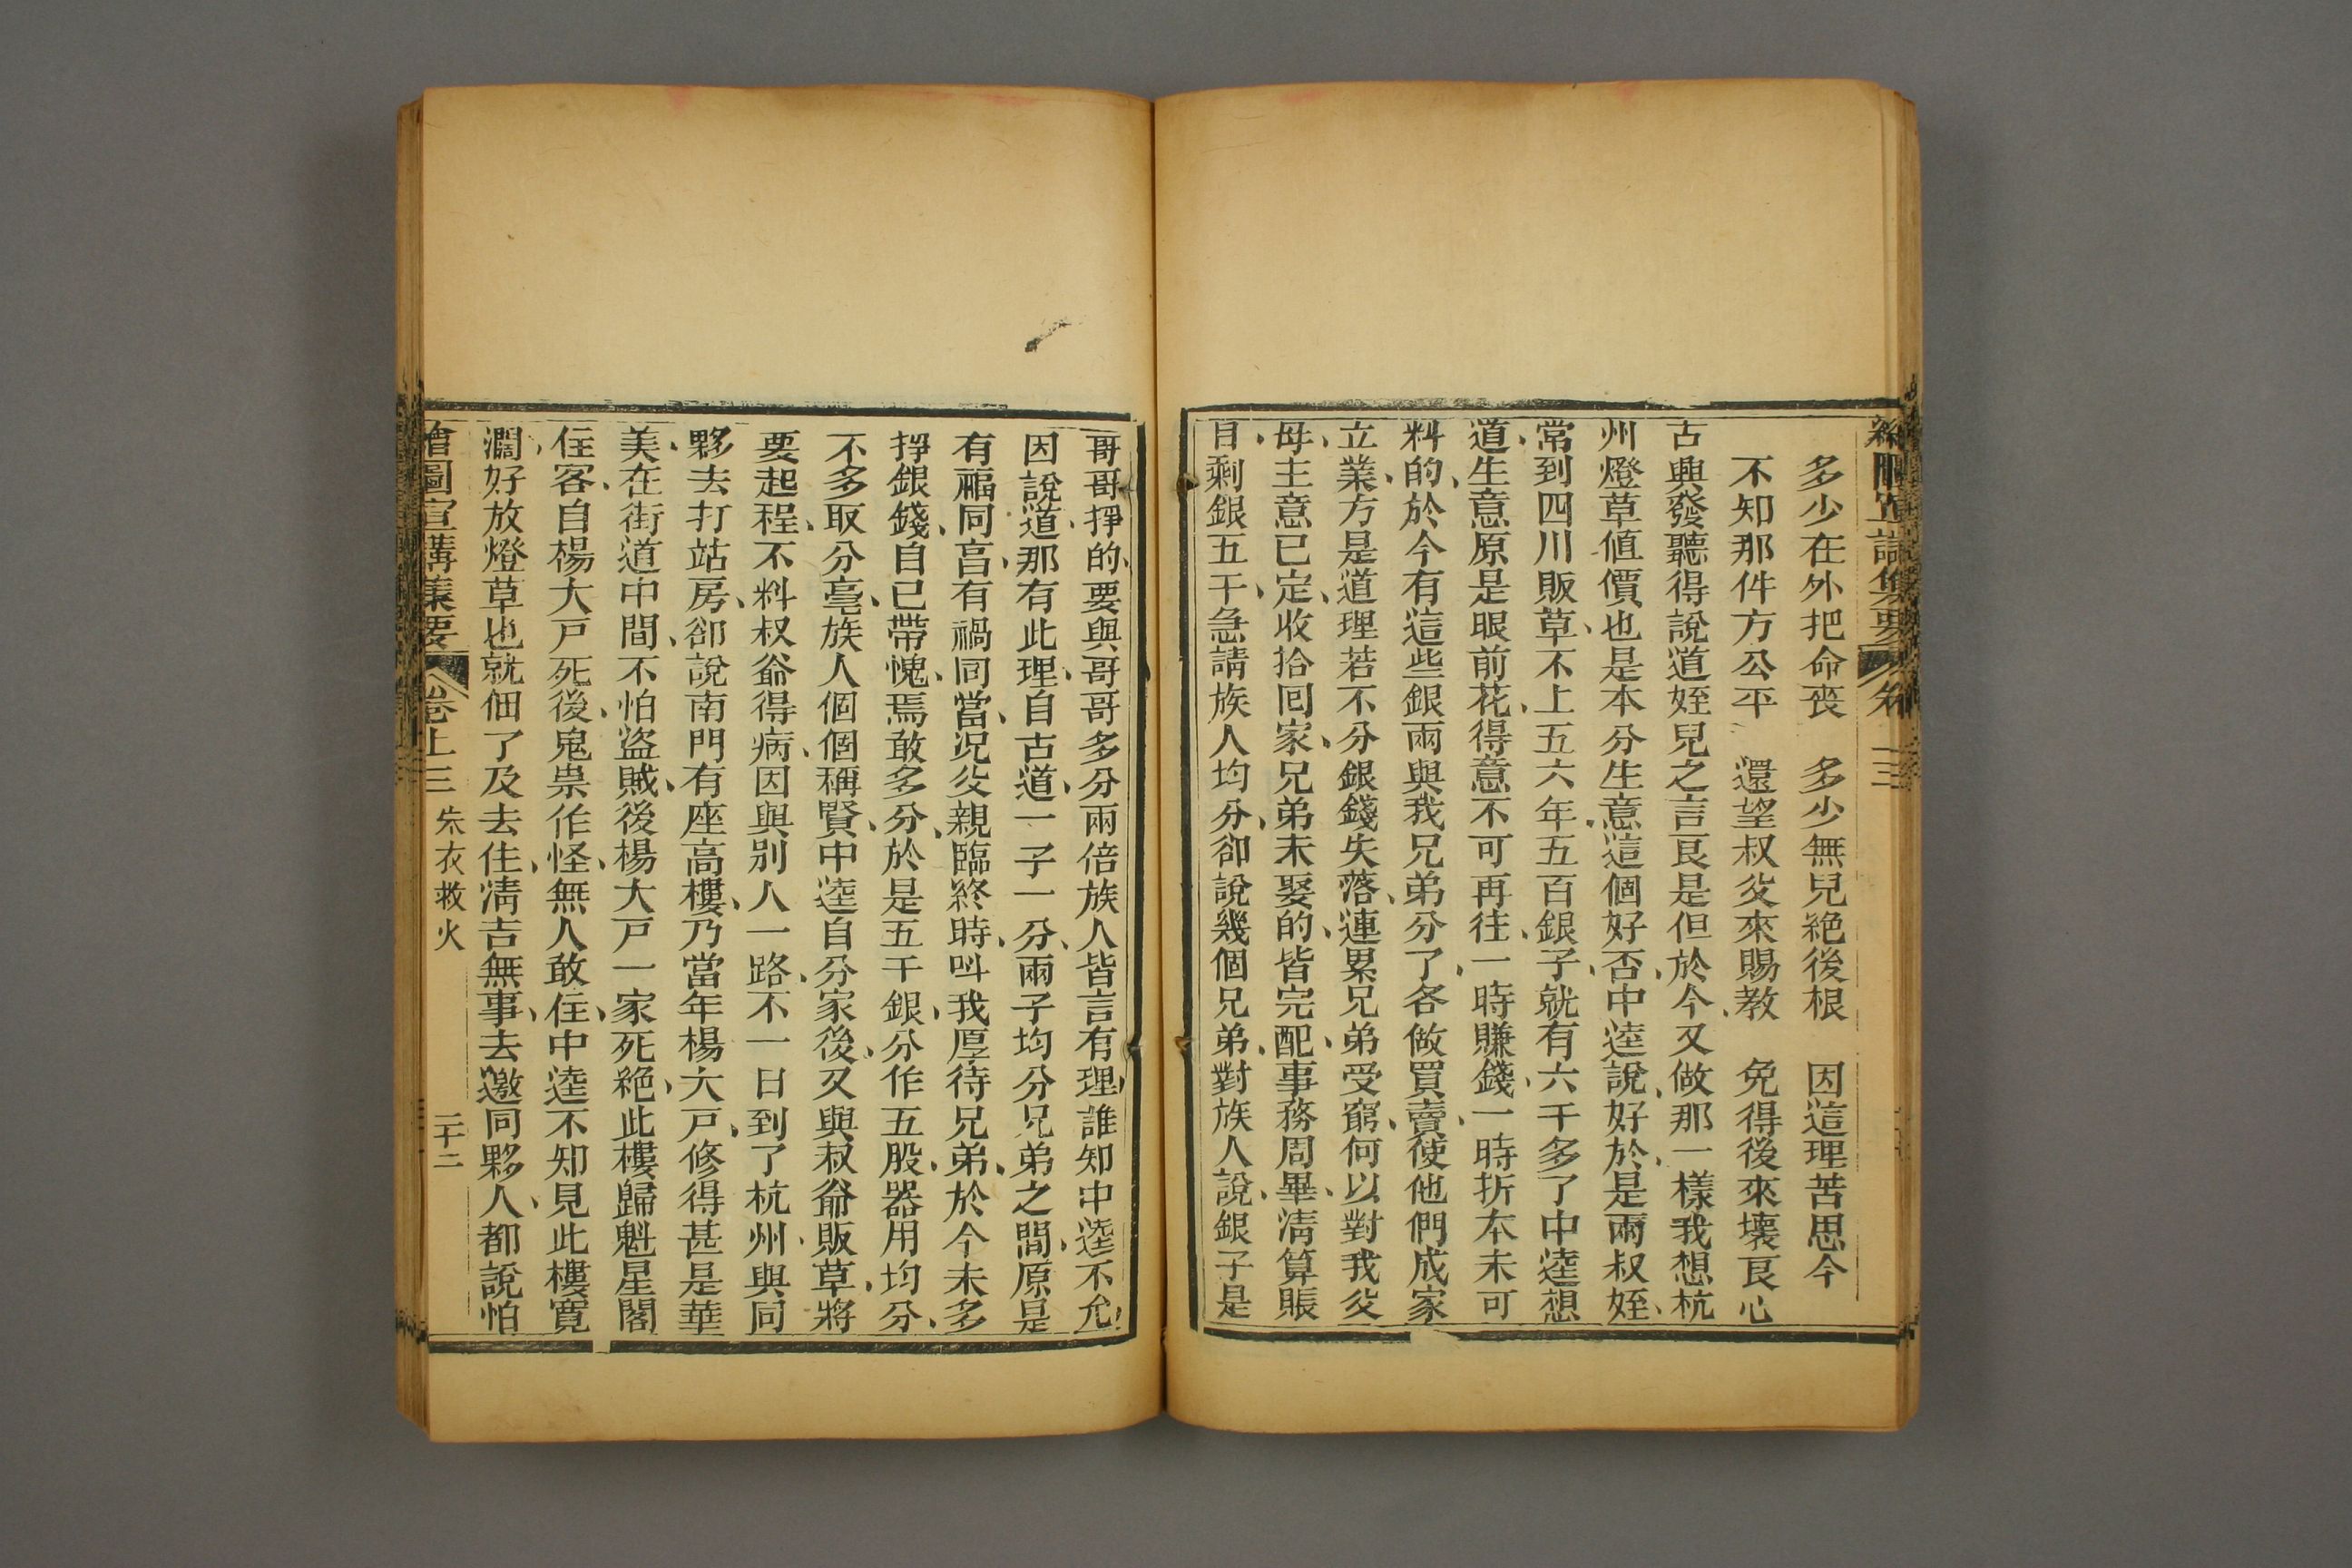 多少在外把命喪　多少無兒絕後根　因這理苦思今
不知那件方公平　還望叔父來賜教　免得後來壞良心
古興發聽得說道姪兒之言良是但於今又做那一樣我想杭
州燈草値價也是本分生意這個好否中逵說好於是兩叔姪
常到四川販草不上五六年五百銀子就有六千多了中逵想
道生意原是眼前花得意不可再往一時賺錢一時折本未可
料的於今有這些銀兩與我兄弟分了各做買賣使他們成家
立業方是道理若不分銀錢失落連累兄弟受窮何以對我父
母主意已定收拾囘家兄弟未娶的皆完配事務周畢淸算賬
目剩銀五千急請族人均分卻說幾個兄弟對族人說銀子是
哥哥掙的要與哥哥多分兩倍族人皆言有理誰知中逵不允
因說道那有此理自古道一子一分兩子均分兄弟之間原是
有福同享有禍同當况父親臨終時叫我厚待兄弟於今未多
掙銀錢自己帶愧焉敢多分於是五千銀分作五股器用均分
不多取分毫族人個個稱賢中逵自分家後又與叔爺販草將
要起程不料叔爺得病因與別人一路不一日到了杭州與同
夥去打站房卻說南門有座高樓乃當年楊大戸修得甚是華
美在街道中間不怕盜賊後楊大戸一家死絕此樓歸魁星閣
住客自楊大戸死後鬼祟作怪無人敢住中逵不知見此樓寬
濶好放燈草也就佃了及去住淸吉無事去邀同夥人都說怕
繪圖宣講集要　卷上三　朱衣救火　二十二